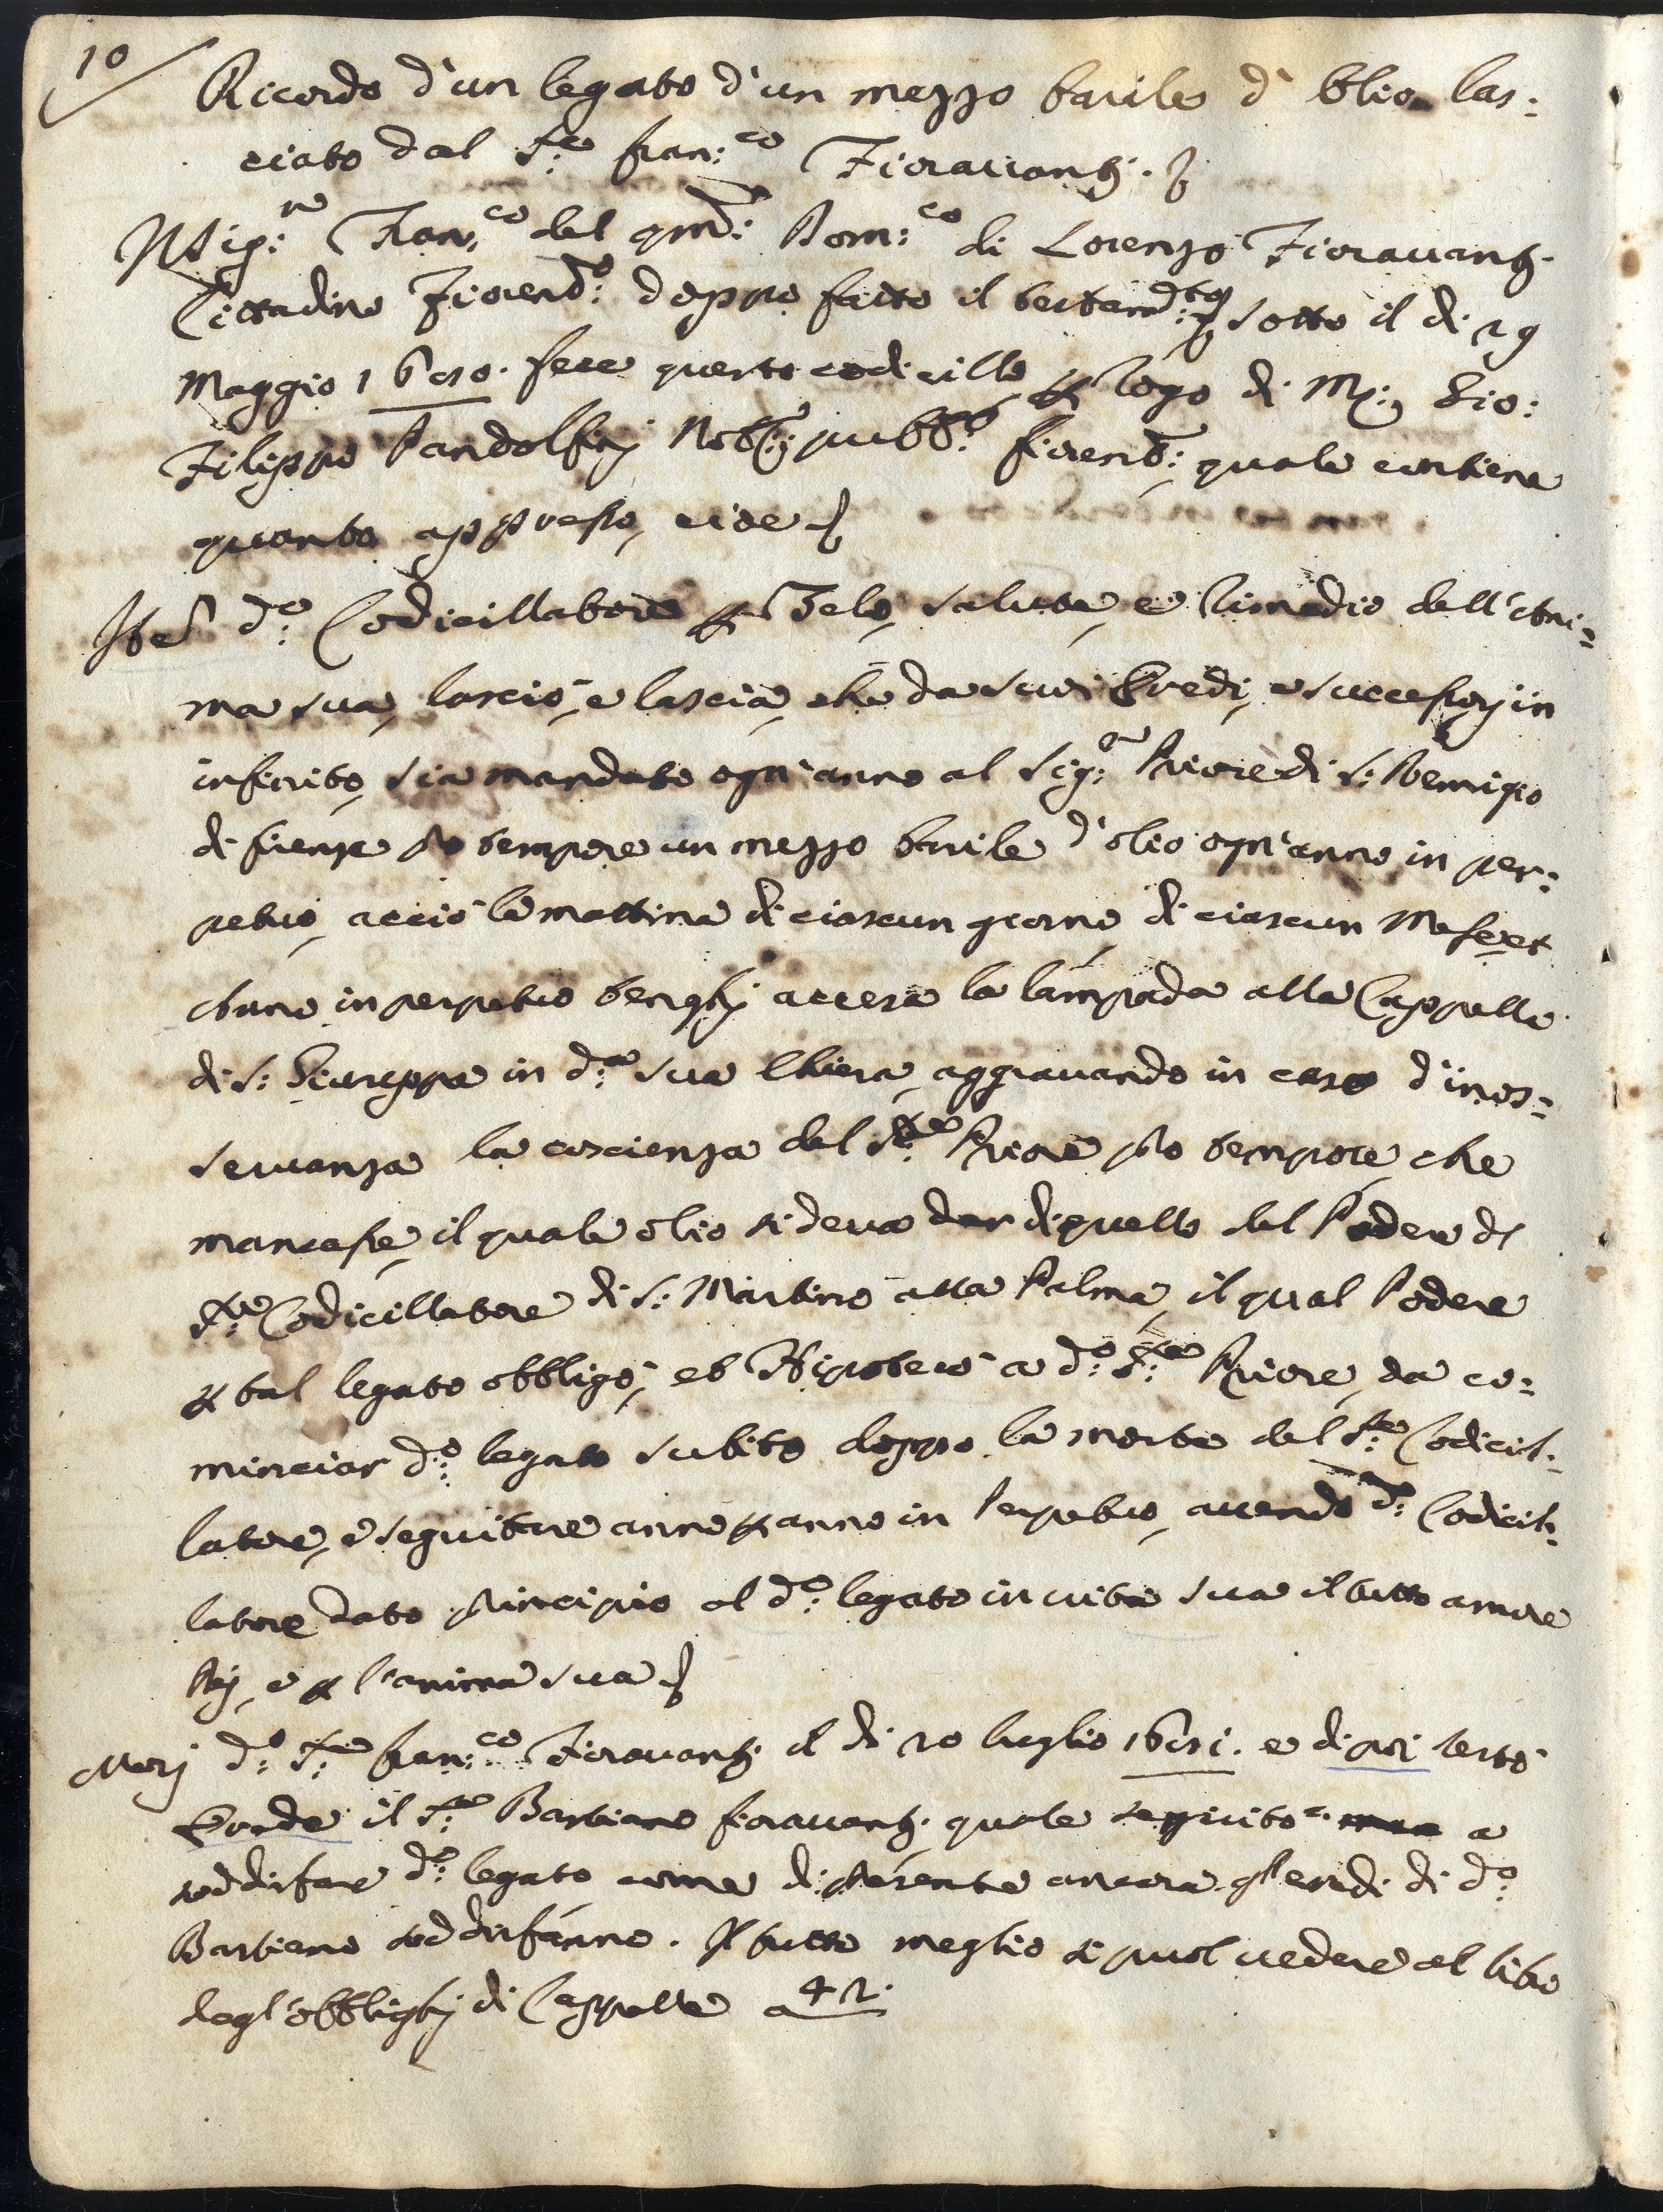 10
Ricordo d'un legato d'un mezzo barile d'Olio las:
ciato dal S.re fran:co Fiorauanti.
Il Sig:re Fran:co del qm: Dom:co di Lorenzo Fiorauanti.
Cittadino Fiorent:o doppo fatto il testam:to sotto il di 29
Maggio 1650. fece questo codicillo p rogo di M: Gio:
Filippo Pandolfinj Nott: pubb:o fiorent:o quale contiene
quanto appresso, cioè
Ite d:o Codicillatore p zelo, salute, e rimedio dell'Ani=
ma sua, lasciò, e lascia, che da suoi Eredi, e successorj in
infinito, sia mandato ogn'anno al Sig:re Priore di S: Remigio
di firenze pro tempore un mezzo barile d'olio ogn'anno in per:
petuo, acciò la mattina di ciascun giorno, di ciascun Mese, et
Anno in perpetuo tenghj accesa la lampada alla Cappella
di S: Giuseppe in d:a sua Chiesa, aggrauando in caso d'inos=
seruanza la coscienza del S:re Priore pro tempore, che
mancasse, il quale olio si deua dar di quello del Podere di
d:o Codicillatore di S: Martino alla Palma, il qual Podere
p tal legato obbligò, et Hipotecò a d:o S:re Priore, da co:
minciar d:o legato subito doppo la morte del S:re Codicil:
latore, e seguitare anno p anno in Perpetuo, auendo d:o Codicil:
latore dato principio al d:o legato in uita sua il tutto amore
Dej, e p l'anima sua
Morj d:o S:re fran:co Fiorauanti il di 20 luglio 1651. e di poi restò
Erede il S:re Bastiano fiorauanti. quale seguitò a
soddisfare d:o legato come di presente ancora gl'eredi di d:o
Bastiano soddisfanno. Il tutto meglio si puol uedere al libro
degl'obblighj di Cappelle a 42.